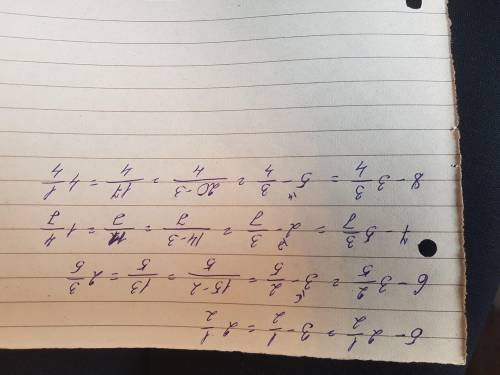 5 - 2 1/2 = 3 - 1/2 = 2 1/2
6 - 3 2/5 = 3 - 2/5 = 15-2/5 = 13/5 = 2 3/5
7 - 5 3/7 = 2 - 3/7 = 14-3/7 = 11/7 = 1 4/7
8 - 3 3/4 = 5 - 3/4 = 20-3/4 = 17/4 = 4 1/4